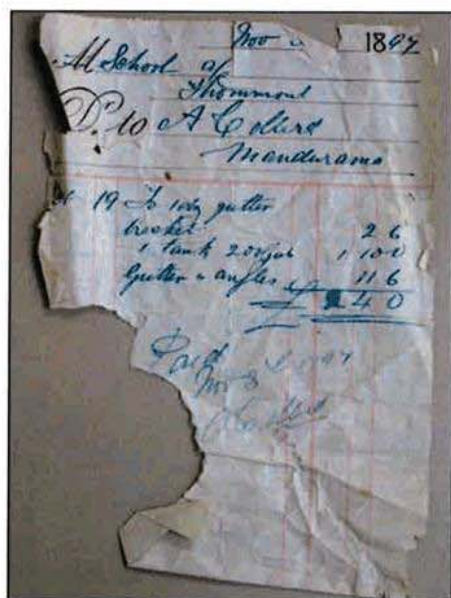 Nov 1897
M School of
Thommond
Dr. to A Collers
Mandurama
19 To 1 doz gutter
bracket 2 6
1 tank 200 gal 1 10 0
Gutter & angles 11 6
£ 2 4 0
Paid
Nov 1897